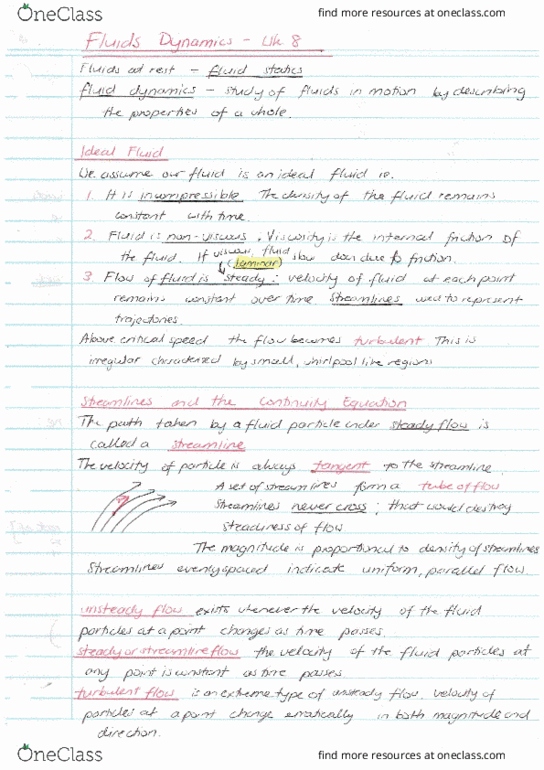 OneClass
find more resources at oneclass.com
Fluids Dynamics - Wk 8
Fluids at rest - fluid statics
fluid dynamics - study of fluids in motion by describing
the properties of a whole.
Ideal Fluid
We assume our fluid is an ideal fluid ie.
1. It is incompressible The density of the fluid remains
constant with time.
2. Fluid is non-viscous. Viscosity is the internal friction of
the fluid. If viscous, fluid slow down due to friction.
(laminar)
3. Flow of fluid is steady: velocity of fluid at each point
remains constant over time Streamlines used to represent
trajectories.
Above critical speed the flow becomes turbulent This is
irregular characterized by small, whirlpool like regions
Streamlines and the Continuity Equation
The path taken by a fluid particle under steady flow is
called a streamline
The velocity of particle is always tangent to the streamline.
A set of streamlines form a tube of flow
Streamlines never cross; that would destroy
steadiness of flow
The magnitude is proportional to density of streamlines
Streamlines evenly spaced indicate uniform, parallel flow.
unsteady flow exists whenever the velocity of the fluid
particles at a point changes as time passes.
steady or streamline flow the velocity of the fluid particles at
any point is constant as time passes
turbulent flow is an extreme type of unsteady flow. velocity of
particles at a point change erratically in both magnitude and
direction.
OneClass
find more resources at oneclass.com